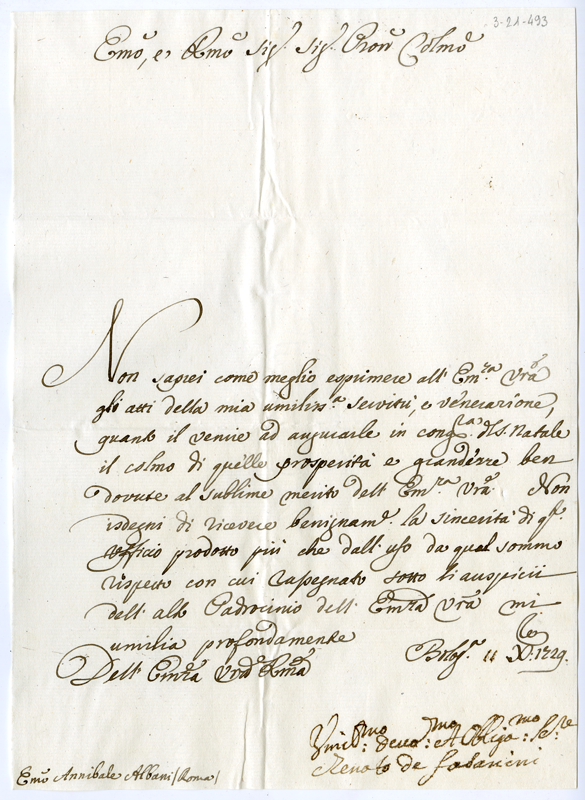 3-21-493
Emo, e Rmo Sig.r Sig.r Pron Colmo
Non saprei come meglio esprimere all' Em.za Vra
gli atti della mia umiliss.a servitù, e venerazione,
quanto il venire ad augurarle in cong.ra del S. Natale
il colmo di quelle prosperità e grandezze ben
dovute al sublime merito dell' Em.za Vra. Non
isdegni di ricevere benignam.e la sincerità di q.to
ufficio prodotto più che dall' uso da quel sommo
rispetto con cui rassegnato sotto li auspicii
dell' alto Padrocinio dell' Emza Vra mi
umilio profondamente
Dell' Emza Vra Rma
11 Xbre 1729.
Umil.mo: devo.mo: et Obliga.mo: Se.re
Renato de
Emo Annibale Albani (Roma)